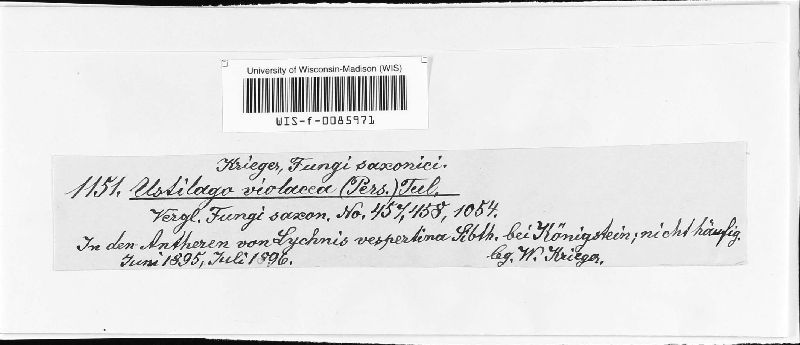 University of Wisconsin-Madison (WIS)
WIS-f-0085971
Krieger, Fungi saxonici.
1151. Ustilago violacea (Pers.) Tul.
Vergl. Fungi saxon. No. 457, 458, 1054.
In den Antheren von Lychnis vespertina Sibth. bei Königstein; nicht häufig.
Juni 1895, Juli 1896.
leg. W. Krieger.